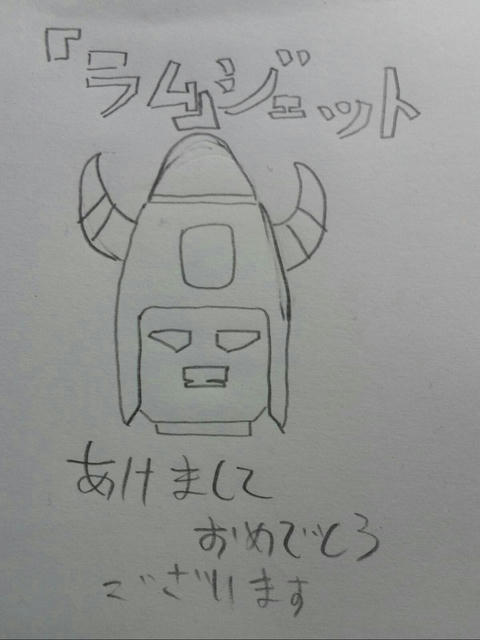 『ラムジェット
あけまして
おめでとう
ございます